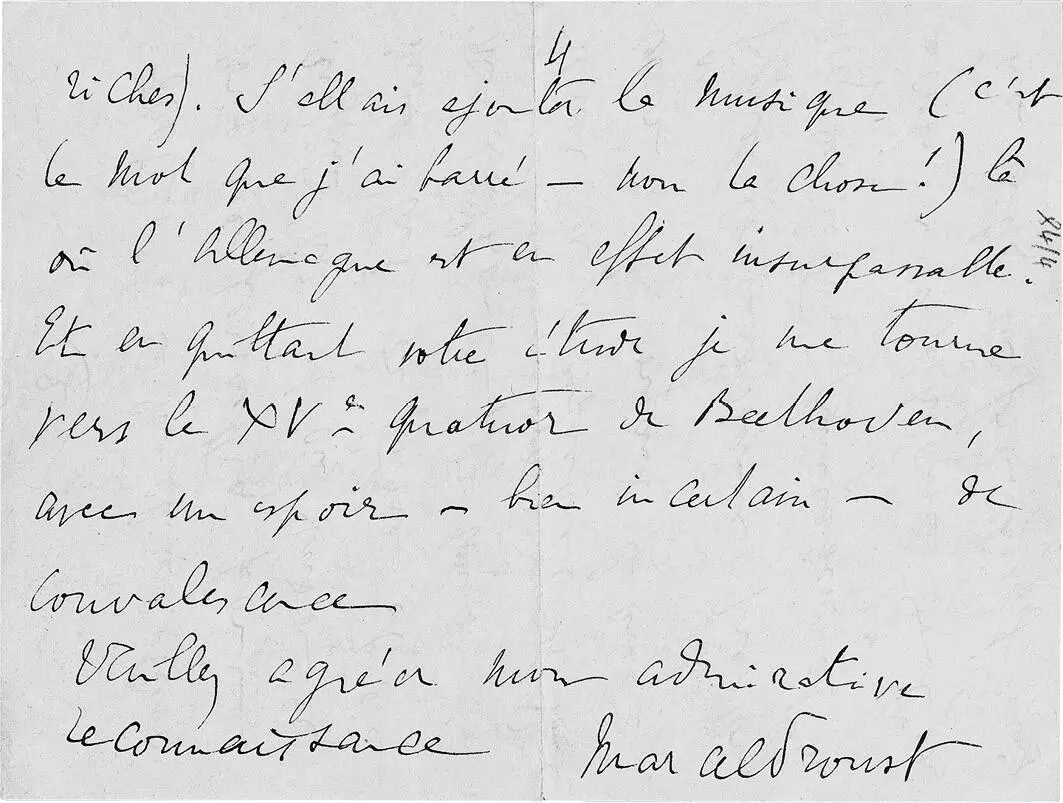 4
riches). J'allais ajouter la musique (c'est
le mot que j'ai barré — non la chose!) là
où l'Allemagne est en effet insurpassable.
Et en quittant votre étude je me tourne
vers le XVe quatuor de Beethoven,
avec un espoir — bien incertain — de
convalescence
Veuillez agréer mon admirative
reconnaissance
Marcel Proust